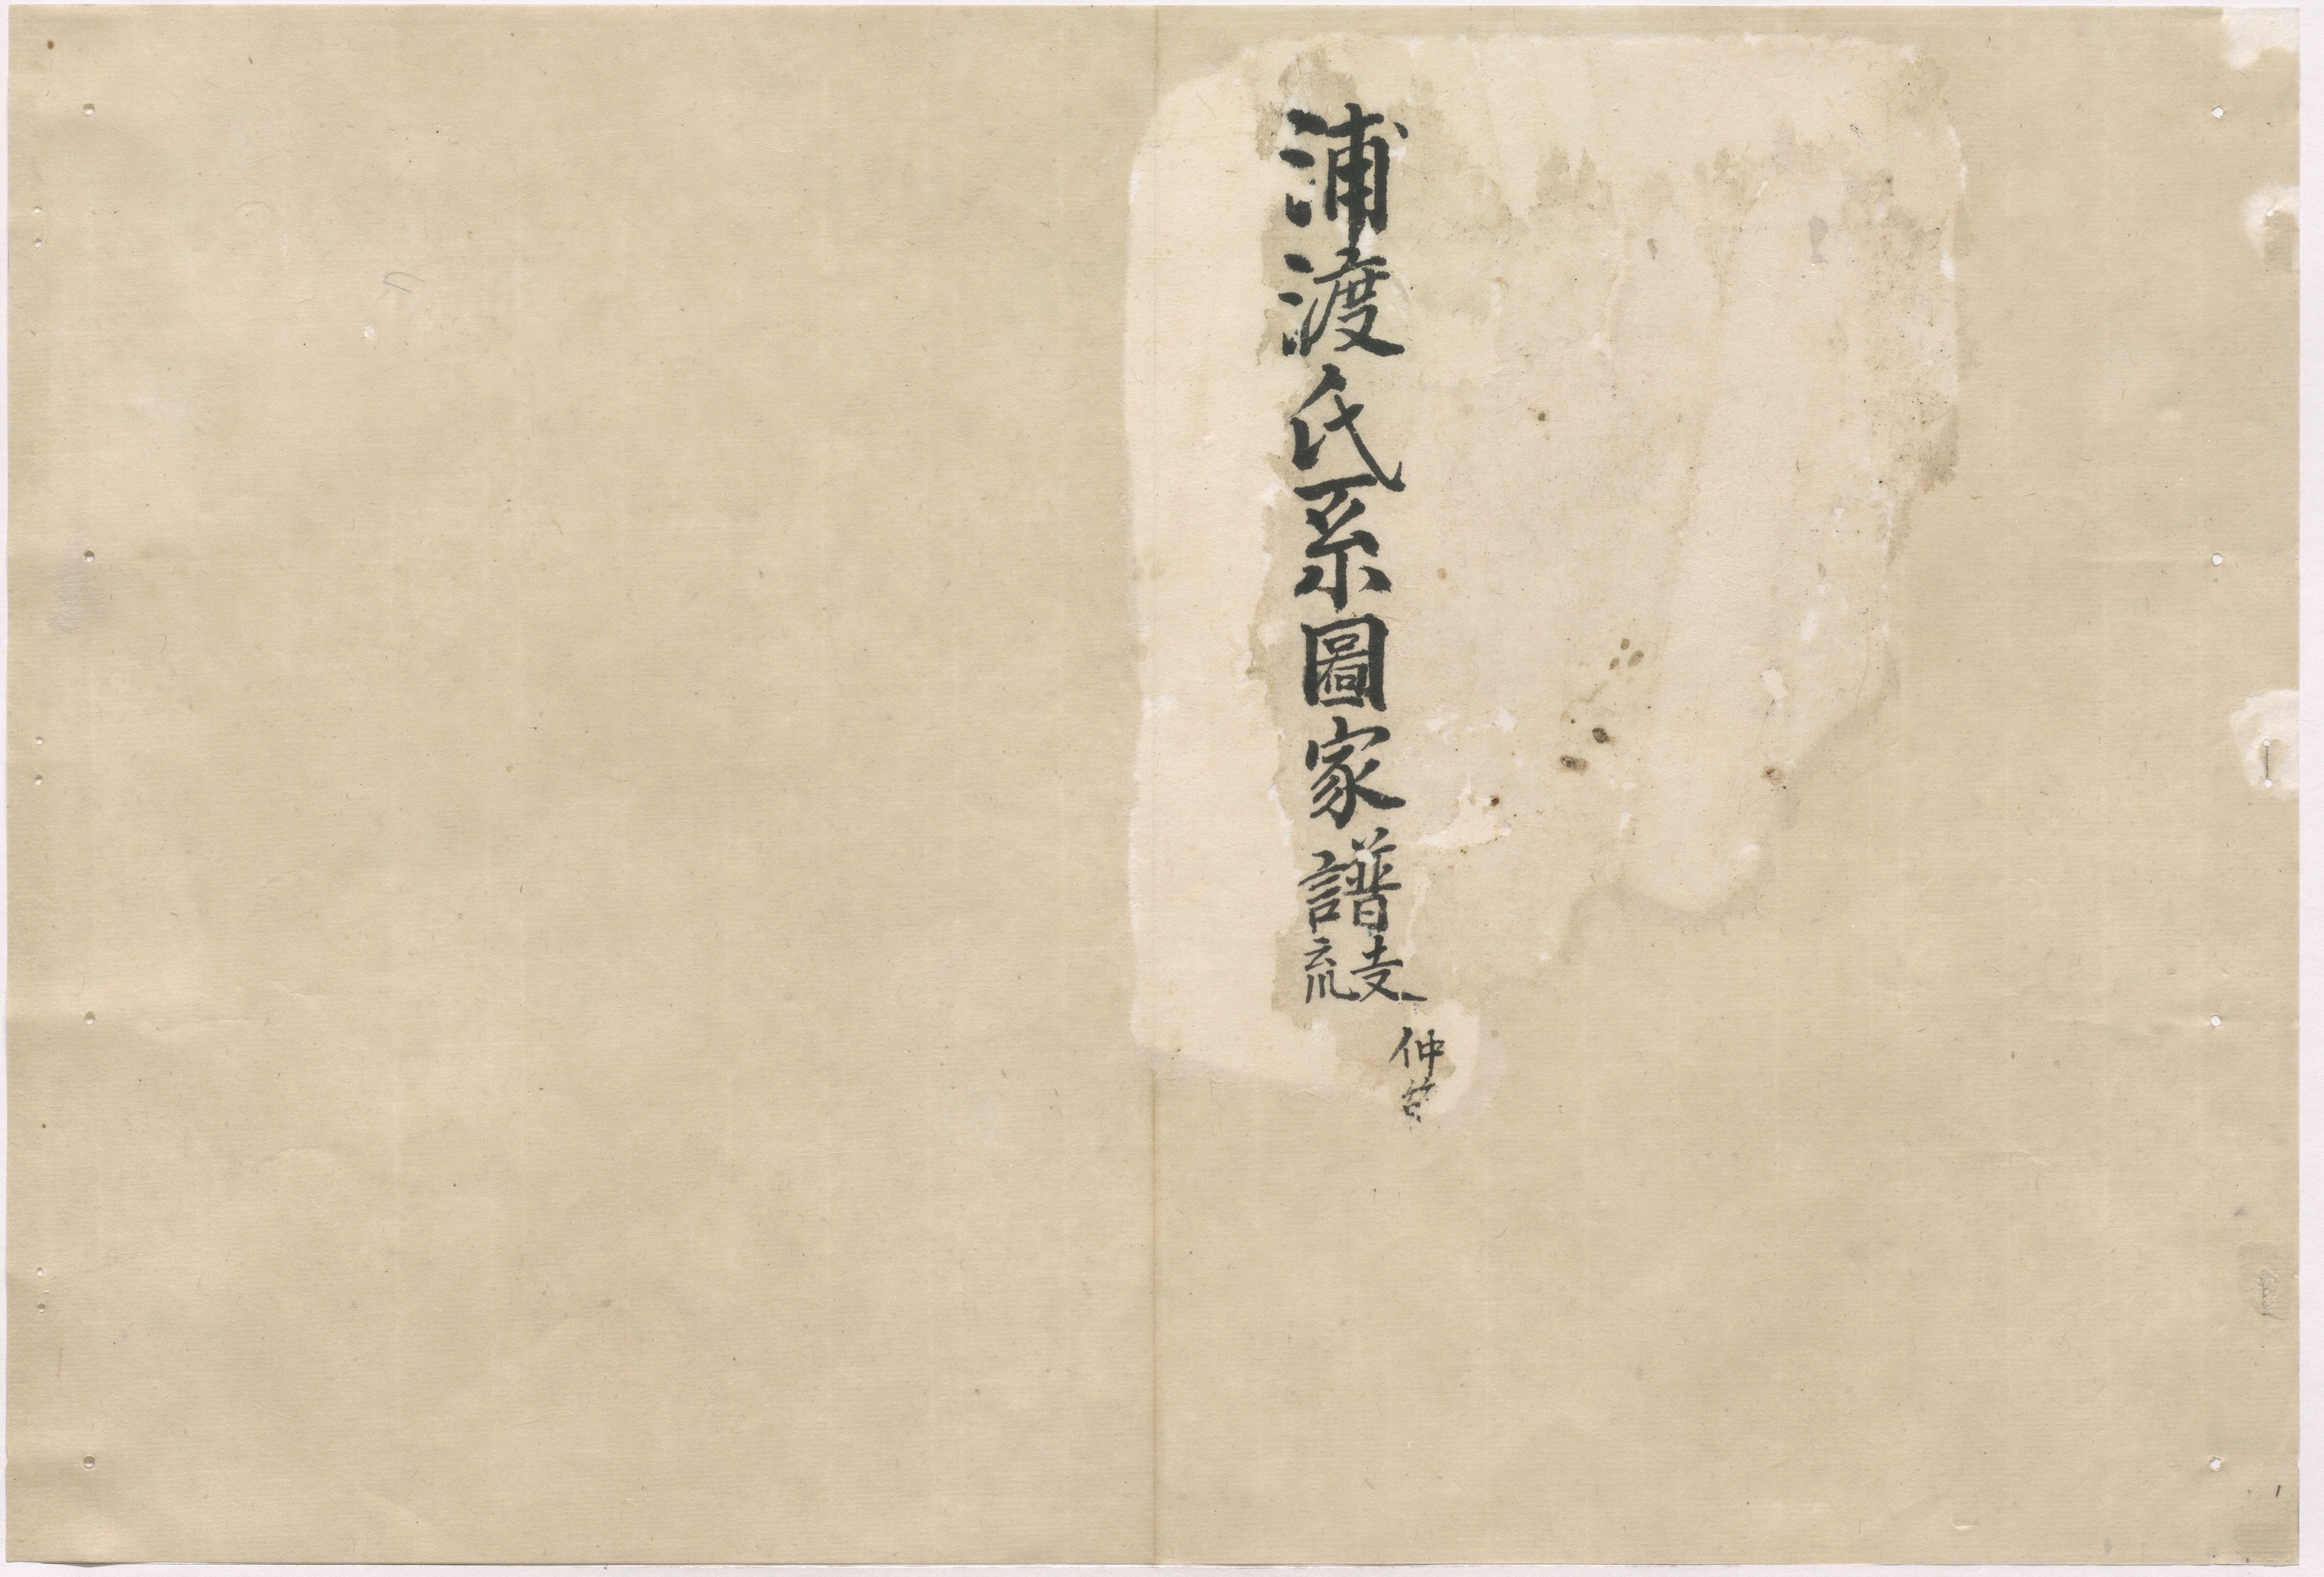 浦渡氏系圖家譜支流
仲